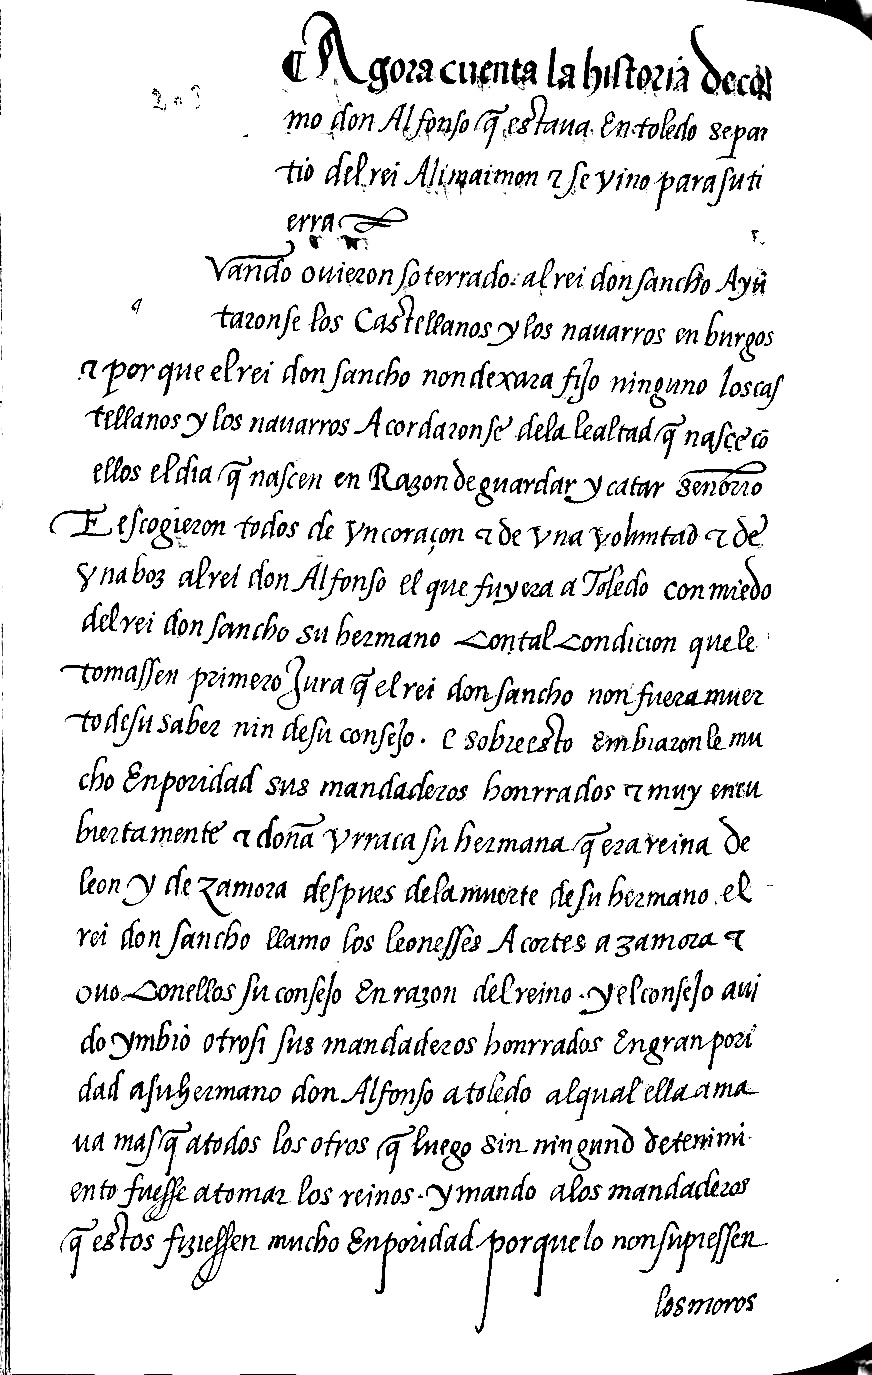 203
Agora cuenta la historia de co
mo don Alfonso q̃ estaua en toledo se par
tio del rei Alimaimon ⁊ se vino para su ti
erra
q
Vando ouieron soterrado al rei don sancho Ayũ
taronse los Castellanos y los nauarros en burgos
⁊ por que el rei don sancho non dexara fijo ninguno los cas
tellanos y los nauarros Acordaronse de la lealtad q̃ nasçe cõ
ellos el dia q̃ nascen en Razon de guardar y catar señorio
E escogieron todos de vn coraçon ⁊ de vna voluntad ⁊ de
vna boz al rei don Alfonso el que fuyera a Toledo con miedo
del rei don sancho su hermano Con tal Condicion que le
tomassen primero Jura q̃ el rei don sancho non fuera muer
to de su saber nin de su consejo. e sobre esto embiaron le mu
cho en poridad sus mandaderos honrrados ⁊ muy encu
biertamente ⁊ doña Vrraca su hermana q̃ era reina de
leon y de zamora despues de la muerte de su hermano el
rei don sancho llamo los leonesses A cortes a zamora ⁊
ouo Con ellos su consejo En razon del reino. y el consejo aui
do ymbio otrosi sus mandaderos honrrados En gran pori
dad a su hermano don Alfonso a toledo al qual ella ama
ua mas q̃ a todos los otros q̃ luego sin ningund detenimi
ento fuesse a tomar los reinos. y mando a los mandaderos
q̃ estos fiziessen mucho En poridad por que lo non supiessen
los moros